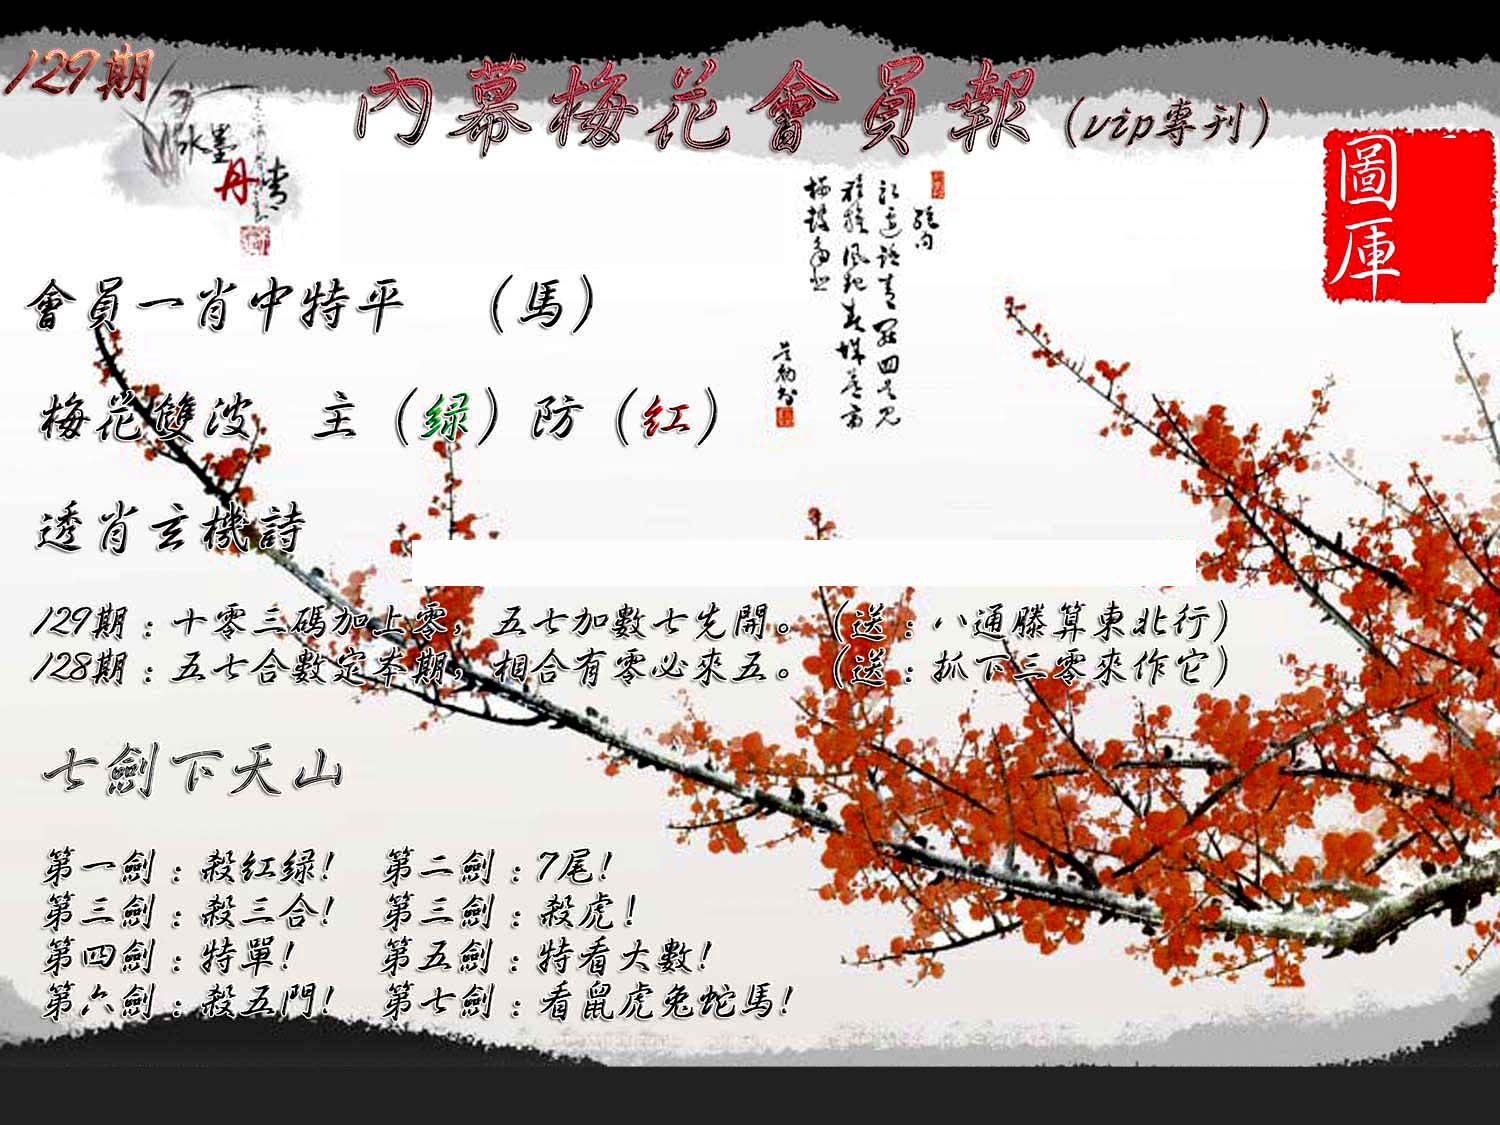 129期
內幕梅花會員報（vip專刊）
水墨
丹青
圖庫
會員一肖中特平 （馬）
梅花雙波 主（绿）防（红）
透肖玄機詩
129期：十零三碼加上零，五七加數七先開。（送：八通勝算東北行）
128期：五七合數定本期，相合有零必來五。（送：抓下三零來作它）
七劍下天山
第一劍：殺红绿！ 第二劍：7尾！
第三劍：殺三合！ 第三劍：殺虎！
第四劍：特單！ 第五劍：特看大數！
第六劍：殺五門！ 第七劍：看鼠虎兔蛇馬！